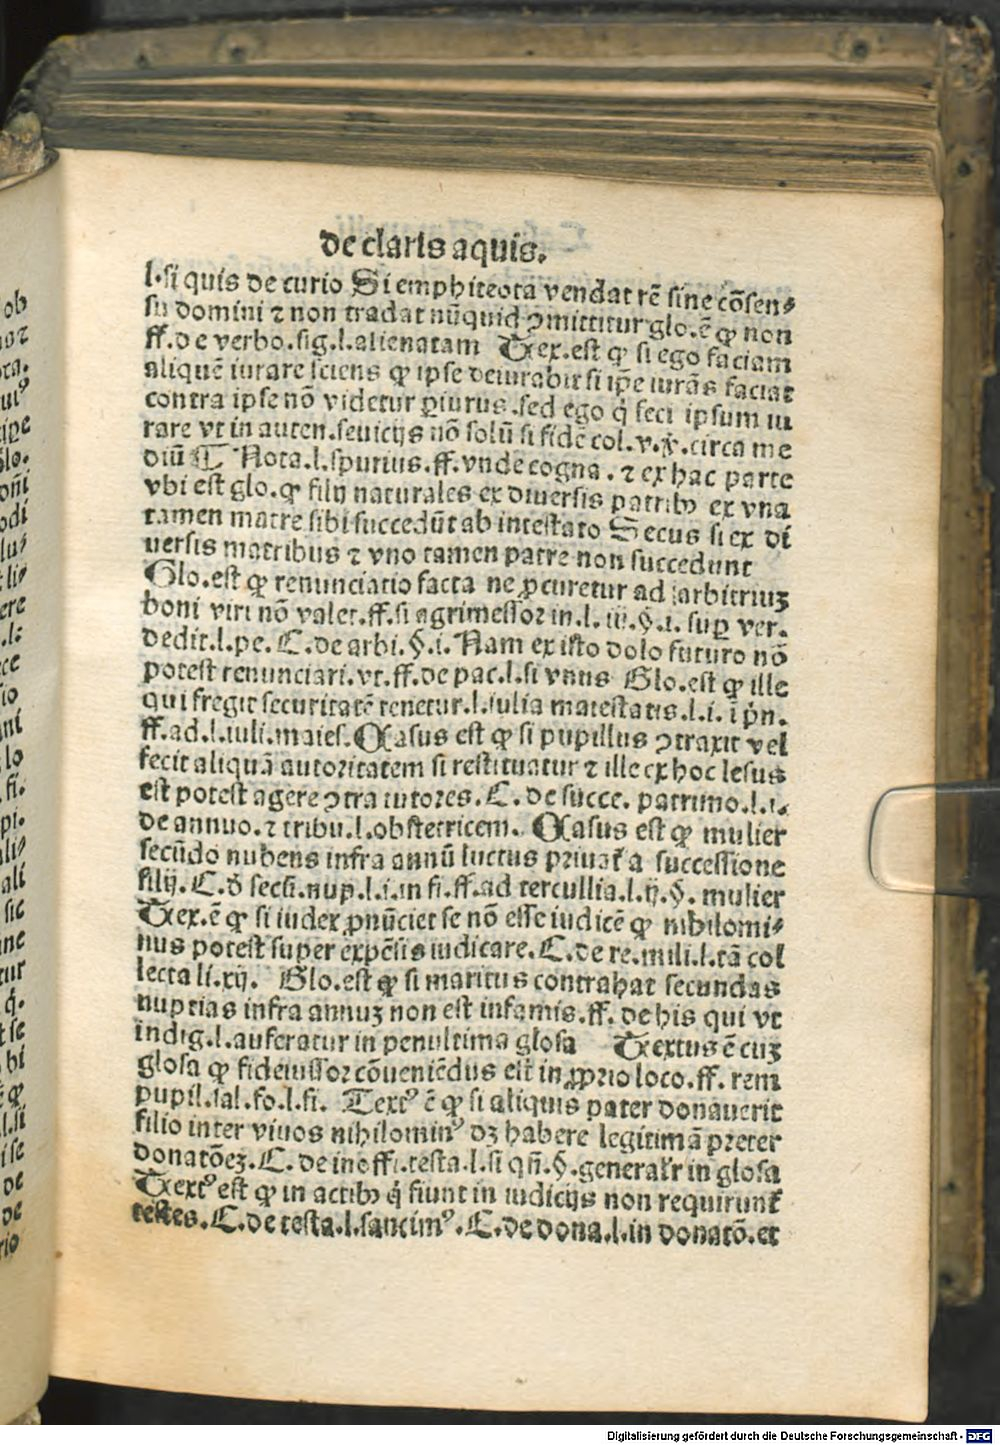 de claris aquis.
l. si quis de curio Si emphiteota vendat rē sine cōsen⸗
su domini ⁊ non tradat nūquid ꝯmittitur glo. ē ꝙ non
ff. de verbo. sig. l. alienatam Tex. est ꝙ si ego faciam
aliquē iurare sciens ꝙ ipse deiurabit si ip̄e iurās faciat
contra ipse nō videtur ꝑiurus. sed ego q̄ feci ipsum iu
rare vt in auten. seuicijs nō solū si fidē col. v. ꝟ. circa me
diū ℂ Nota. l. spurius. ff. vnde cogna. ⁊ ex hac parte
vbi est glo. ꝙ filij naturales ex diuersis patribꝰ ex vna
tamen matre sibi succedūt ab intestato Secus si ex di
uersis matribus ⁊ vno tamen patre non succedunt
Glo. est ꝙ renunciatio facta ne ꝓcuretur ad arbitriuꝫ
boni viri nō valet. ff. si agrimessor in. l. iij. §. i. suꝑ ver.
dedit. l. pe. C. de arbi. §. i. Nam ex isto dolo futuro nō
potest renunciari. vt. ff. de pac. l. si vnns Glo. est ꝙ ille
qui fregit securitatē tenetur. l. iulia maiestatis. l. i. ī p̄n.
ff. ad. l. iuli. maies. Casus est ꝙ si pupillus ꝯtraxit vel
fecit aliquā autoritatem si restituatur ⁊ ille ex hoc lesus
est potest agere ꝯtra tutores. C. de succe. patrimo. l. i.
de annuo. ⁊ tribu. l. obstetricem. Casus est ꝙ mulier
secūdo nubens infra annū luctus priuat̄ a successione
filij. C. ð secū. nup. l. i. in fi. ff. ad tercullia. l. ij. §. mulier
Tex. ē ꝙ si iudex ꝓnūciet se nō esse iudicē ꝙ nihilomi⸗
nus potest super expēsis iudicare. C. de re. mili. l. tā col
lecta li. xij. Glo. est ꝙ si maritus contrahat secundas
nuptias infra annuꝫ non est infamis. ff. de his qui vt
indig. l. auferatur in penultima glosa Textus ē cuꝫ
glosa ꝙ fideiussor cōueniēdus est in ꝓprio loco. ff. rem
pupil. sal. fo. l. fi. Textꝰ ē ꝙ si aliquis pater donauerit
filio inter viuos nihilominꝰ dꝫ habere legitimā preter
donatōeꝫ. C. de inoffi. testa. l. si qn̄. §. generalr̄ in glosa
Textꝰ est ꝙ in actibꝰ q̇ fiunt in iudicijs non requirunt̄
testes. C. de testa. l. sancimꝰ. C. de dona. l. in donatō. et
Digitalisierung gefördert durch die Deutsche Forschungsgemeinschaft - DFG